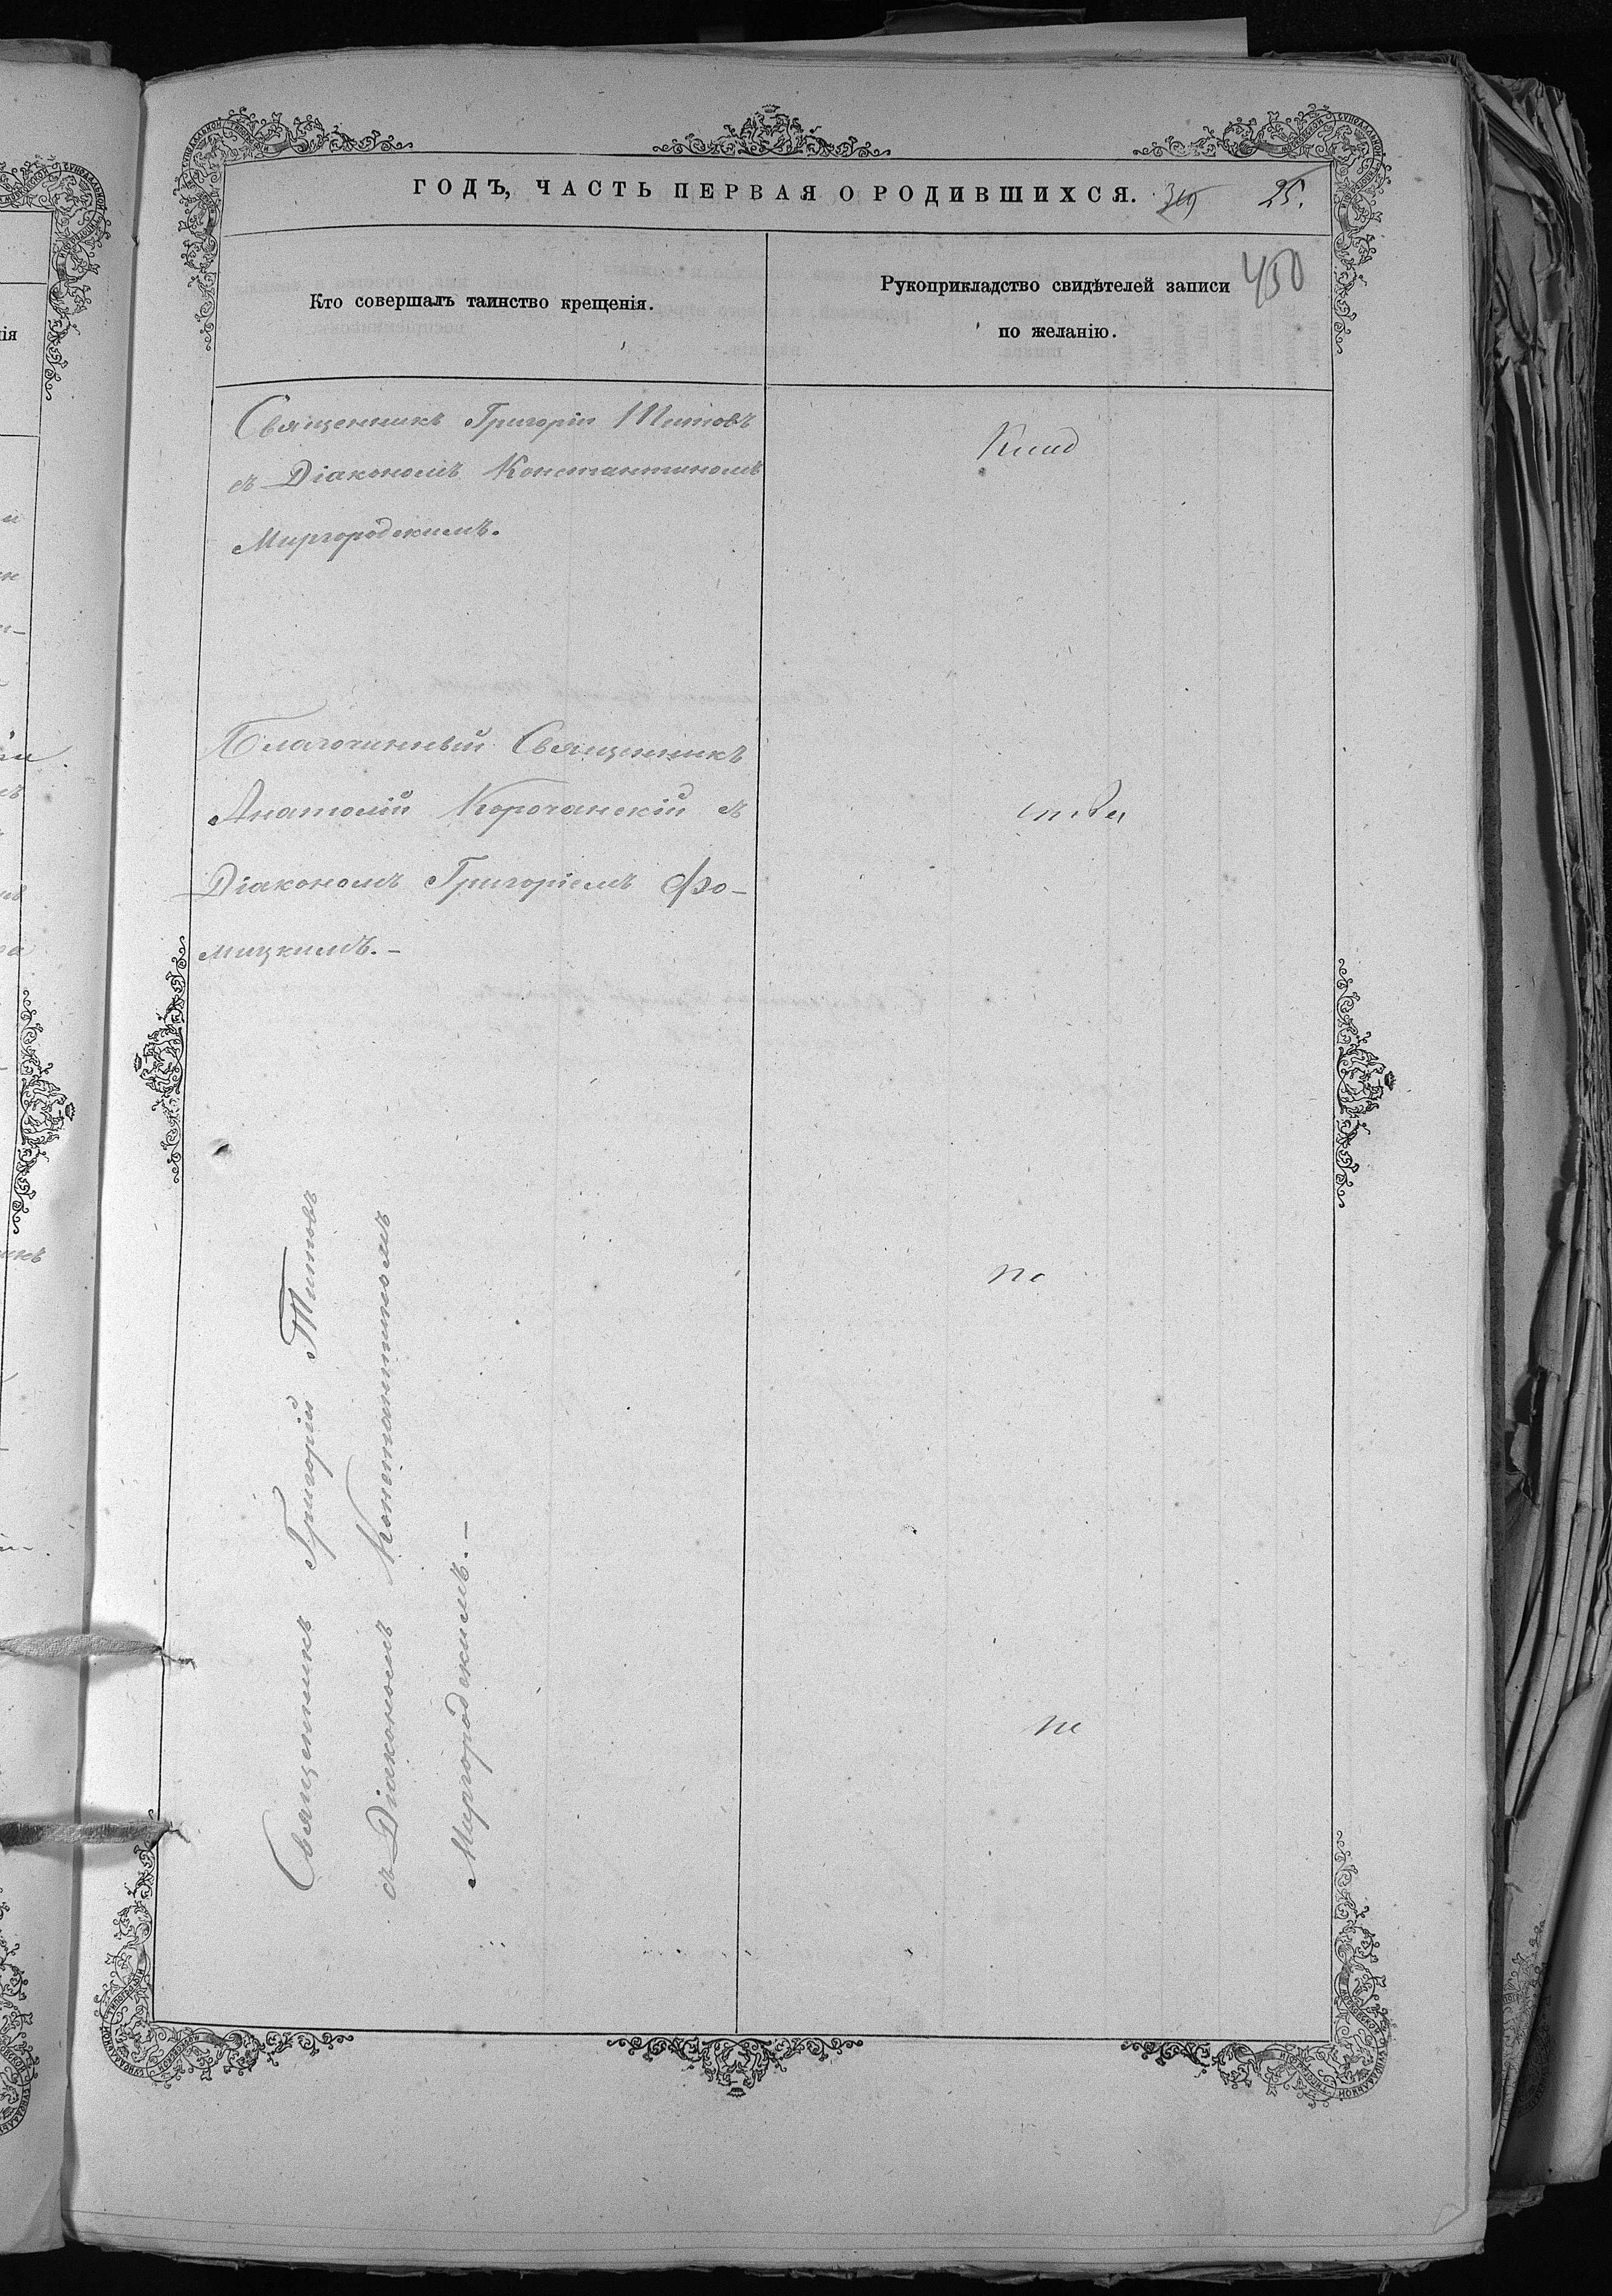 ГОДЪ, ЧАСТЬ ПЕРВАЯ О РОДИВШИХСЯ. 25.
450
Кто совершалъ таинство крещенія.
Рукоприкладство свидѣтелей записи
по желанію.
Священникъ Григорій Титовъ
съ Діакономъ Константиномъ
Миргородскимъ.
Благочинный Священникъ
Анатолій Корочанскій съ
Діакономъ Григоріемъ Фо-
мицкимъ.-
Священникъ Григорій Титовъ
съ Діакономъ Константиномъ
Миргородскимъ.-